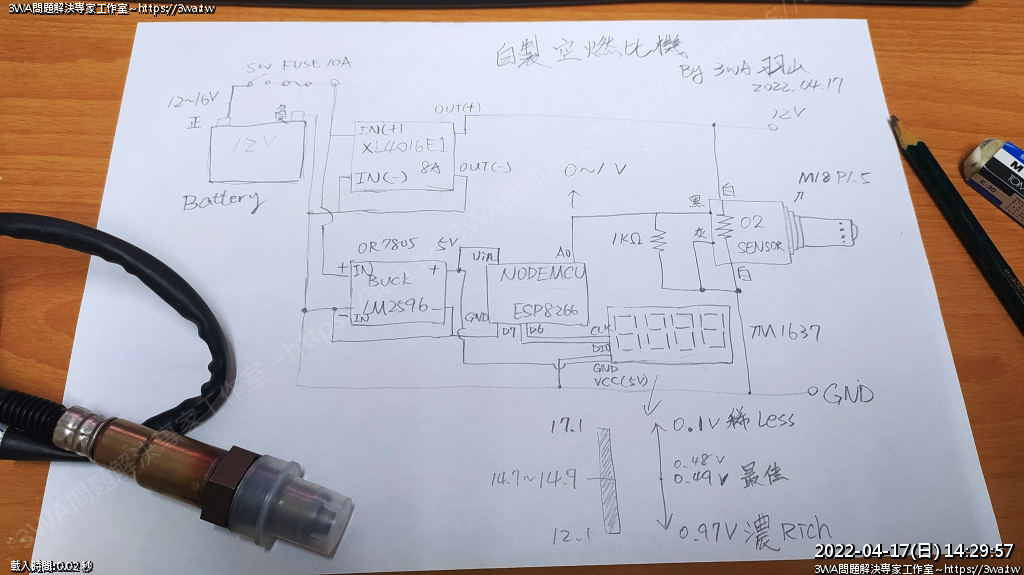 3WA問題解決專家工作室~https://3wa.tw
自製空燃比機
By 3WA 羽山
2022.04.17
SW FUSE 10A
12~16V
正
負
12V
Battery
IN(+)
XL4016E1
8A
IN(-)
OUT(+)
OUT(-)
12V
0~1V
白
黑
灰
白
O2
SENSOR
M18 P1.5
1KΩ
OR 7805
5V
+ IN
BUCK
+
LM2596
- IN
-
Vin
A0
NODEMCU
ESP8266
GND
D7
D6
CLK
DIO
GND
VCC(5V)
TM1637
GND
17.1
0.1V 稀 Less
14.7~14.9
0.48V
0.49V 最佳
0.97V 濃 Rich
E-30
載入時間:0.02 秒
2022-04-17(日) 14:29:57
3WA問題解決專家工作室~https://3wa.tw